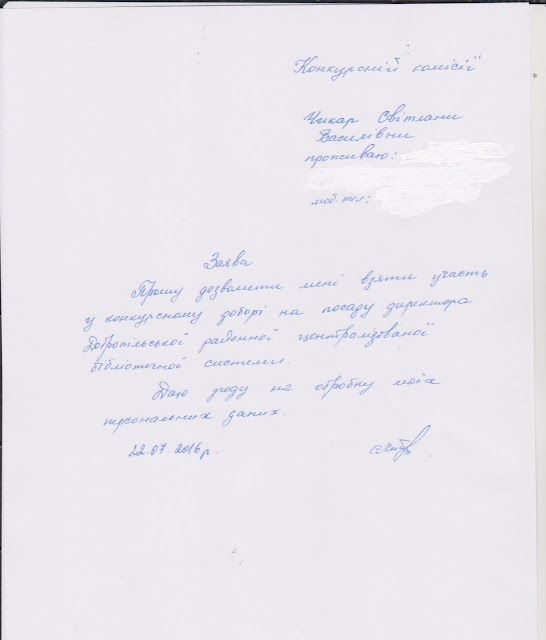 Конкурсній комісії
Чикар Світлани
Василівни
проживаю:
моб. тел:
Заява
Прошу дозволити мені взяти участь
у конкурсному доборі на посаду директора
Добропільської районної централізованої
бібліотечної системи.
Даю згоду на обробку моїх
персональних даних.
22.07.2016 р.